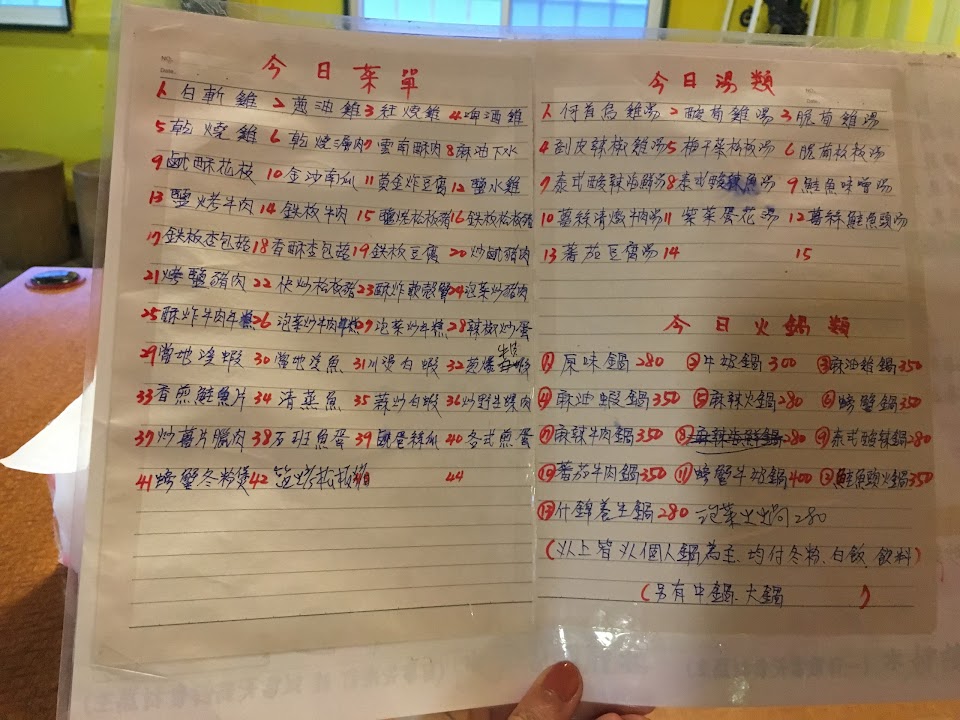 NO.
Date.
今日菜單
1 白斬雞 2 蔥油雞 3 紅燒雞 4 啤酒雞
5 乾燒雞 6 乾燒滷肉 7 雲南酥肉 8 麻油下水
9 鹹酥花枝 10 金沙南瓜 11 黃金炸豆腐 12 鹽水雞
13 鹽烤牛肉 14 鉄板牛肉 15 鹽焗松板豬 16 鉄板松板豬
17 鉄板杏包菇 18 香酥杏包菇 19 鉄板豆腐 20 炒鹹豬肉
21 烤鹽豬肉 22 快炒松板豬 23 酥炸軟殼蟹 24 泡菜炒豬肉
25 酥炸牛肉年糕 26 泡菜炒牛肉年糕 27 泡菜炒年糕 28 辣椒炒蛋
29 當地溪蝦 30 當地溪魚 31 川燙白蝦 32 蔥爆蝦
33 香煎鮭魚片 34 清蒸魚 35 蒜炒白蝦 36 炒野生蜾肉
37 炒薑片臘肉 38 石班魚蛋 39 鹹蛋絲瓜 40 各式煎蛋
41 螃蟹冬粉煲 42 松板豬 44
NO.
Date.
今日湯類
1 何首烏雞湯 2 酸菊雞湯 3 脆菊雞湯
4 剝皮辣椒雞湯 5 梅干菜松板湯 6 脆菊松板湯
7 泰式酸辣海鮮湯 8 泰式酸辣魚湯 9 鮭魚味噌湯
10 薑絲清燉牛肉湯 11 紫菜蛋花湯 12 薑絲鮭魚頭湯
13 蕃茄豆腐湯 14 15
今日火鍋類
① 原味鍋280 ② 牛奶鍋300 ③ 麻油雞鍋350
④ 麻油蝦鍋350 ⑤ 麻辣火鍋280 ⑥ 螃蟹鍋350
⑦ 麻辣牛肉鍋350 ⑧ 麻辣海鮮鍋280 ⑨ 泰式酸辣鍋280
⑩ 蕃茄牛肉鍋350 ⑪ 螃蟹牛奶鍋400 ⑫ 鮭魚頭火鍋350
⑬ 什錦養生鍋280 泡菜火鍋280
(以上皆以個人鍋為主 均付冬粉、白飯、飲料)
(另有中鍋、大鍋 )